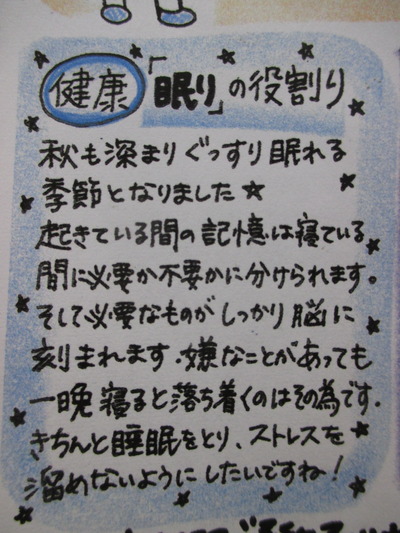 健康「眠り」の役割り
秋も深まりぐっすり眠れる
季節となりました☆
起きている間の記憶は寝ている
間に必要か不要かに分けられます。
そして必要なものがしっかり脳に
刻まれます.嫌なことがあっても
一晩寝ると落ち着くのはその為です.
きちんと睡眠をとり、ストレスを
溜めないようにしたいですね!